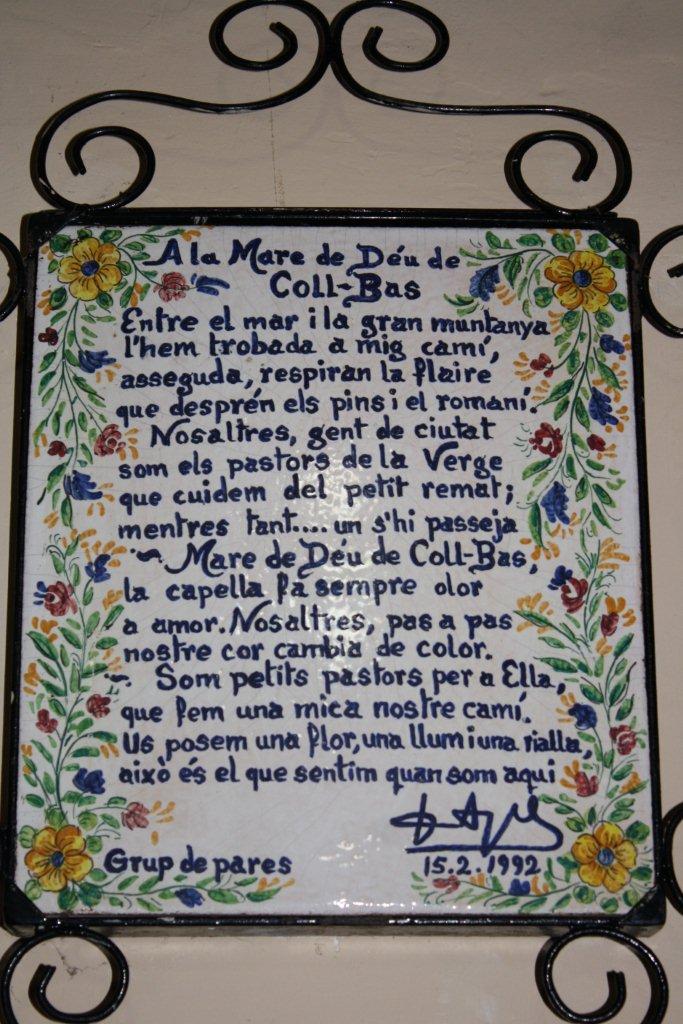 A la Mare de Déu de
Coll-Bas
Entre el mar i la gran muntanya
l'hem trobada a mig camí,
asseguda, respiran la flaire
que desprén els pins i el romaní.
Nosaltres, gent de ciutat
som els pastors de la Verge
que cuidem del petit remat;
mentres tant.... un s'hi passeja
Mare de Déu de Coll-Bas,
la capella fa sempre olor
a amor. Nosaltres, pas a pas
nostre cor cambia de color.
Som petits pastors per a Ella,
que fem una mica nostre camí.
Us posem una flor, una llum i una rialla,
això és el que sentim quan som aqui
Grup de pares
15.2.1992